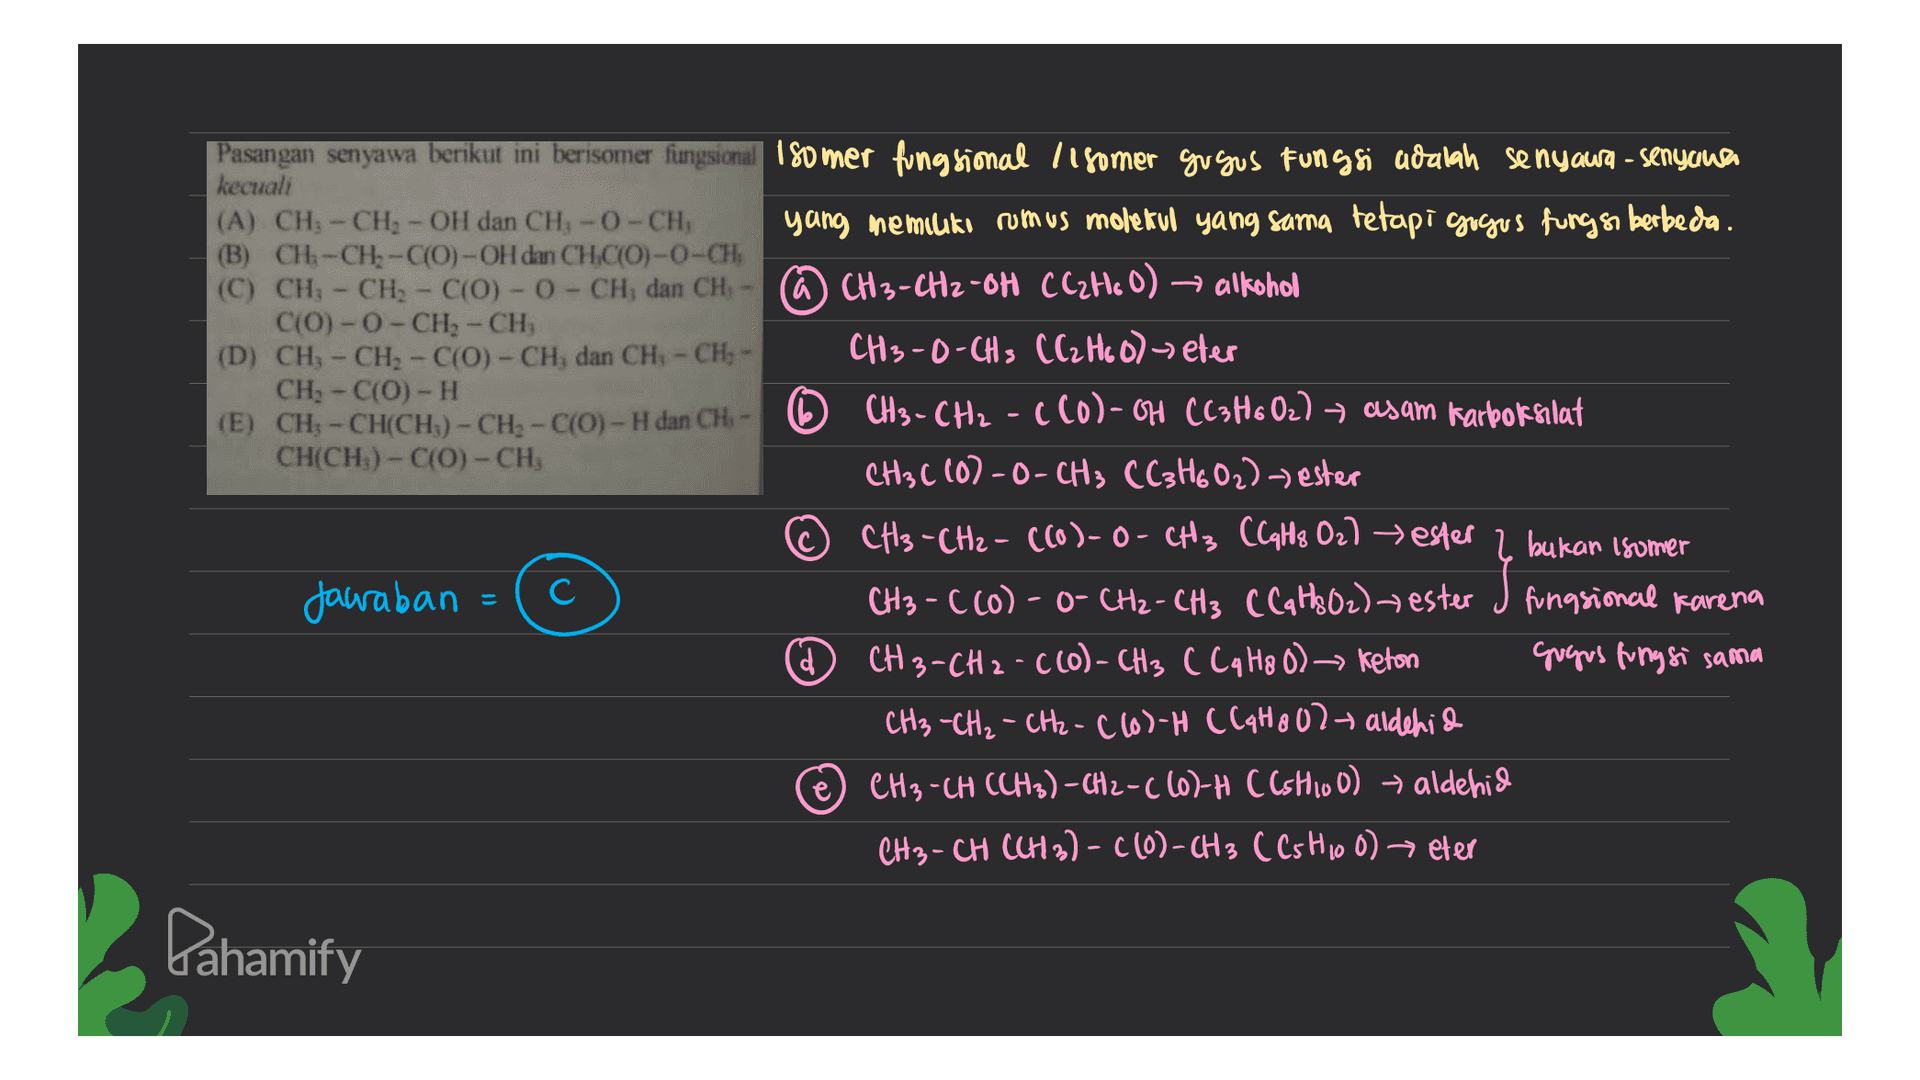 Pasangan senyawa berikut ini berisomer fungsional
kecuali
(A) CH₃ – CH₂ – OH dan CH₃ – O – CH₃
(B) CH₃ – CH₂ – C(O) – OH dan CH₃C(O) – O – CH₃
(C) CH₃ – CH₂ – C(O) – O – CH₃ dan CH₃ –
C(O) – O – CH₂ – CH₃
(D) CH₃ – CH₂ – C(O) – CH₃ dan CH₃ – CH₂ –
CH₂ – C(O) – H
(E) CH₃ – CH(CH₃) – CH₂ – C(O) – H dan CH₃ –
CH(CH₃) – C(O) – CH₃
Jawaban = C
Isomer fungsional / Isomer gugus fungsi adalah senyawa - senyawa
yang memiliki rumus molekul yang sama tetapi gugus fungsi berbeda.
a CH3-CH2-OH (C2H6O) → alkohol
CH3-O-CH3 (C2H6O) → eter
b CH3-CH2-C(O)-OH (C3H6O2) → asam karboksilat
CH3C(O)-O-CH3 (C3H6O2) → ester
c CH3-CH2-C(O)-O-CH3 (C4H8O2) → ester
CH3-C(O)-O-CH2-CH3 (C4H8O2) → ester
} bukan isomer
fungsional karena
gugus fungsi sama
d CH3-CH2-C(O)-CH3 (C4H8O) → keton
CH3-CH2-CH2-C(O)-H (C4H8O) → aldehid
e CH3-CH(CH3)-CH2-C(O)-H (C5H10O) → aldehid
CH3-CH(CH3)-C(O)-CH3 (C5H10O) → eter
Pahamify